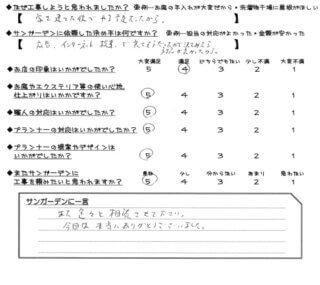 ◆なぜ工事しようと思われましたか？ 事例…お庭の手入れが大変だから・洗濯物干場に屋根がほしい
【 家を建てた後で やる予定だったから。 】
◆サンガーデンに依頼した決め手は何ですか？ 事例…担当の対応がよかった・金額が安かった
【 広告、インターネット 検索で 】
大変満足 満足 どちらでもない 少し不満 大変不満
◆お店の印象はいかがでしたか？ 5 4 3 2 1
◆お庭やエクステリア等の使い心地、
仕上がりはいかがですか？ 5 4 3 2 1
◆職人の対応はいかがでしたか？ 5 4 3 2 1
◆プランナーの対応はいかがでしたか？ 5 4 3 2 1
◆プランナーの提案力デザインは
いかがでしたか？ 5 4 3 2 1
◆またサンガーデンに 是非 少し 分からない あまり 思わない
工事を頼みたいと思われますか？ 5 4 3 2 1
サンガーデンに一言
また 色々と 相談 させて下さい。
今回は 本当に ありがとうございました。